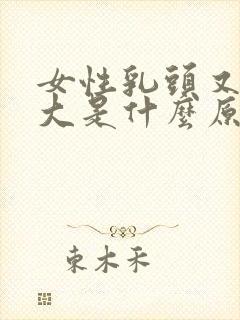 女性乳頭又
大是什麼原
東木禾